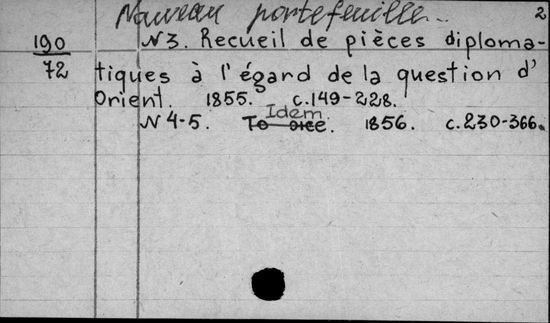 Nouveau portefeuille... 2
190 N 3. Recueil de pièces diploma-
72 tiques à l'égard de la question d'
Orient. 1855. c.149-228.
Idem
N 4-5. То же. 1856. c.230-366.